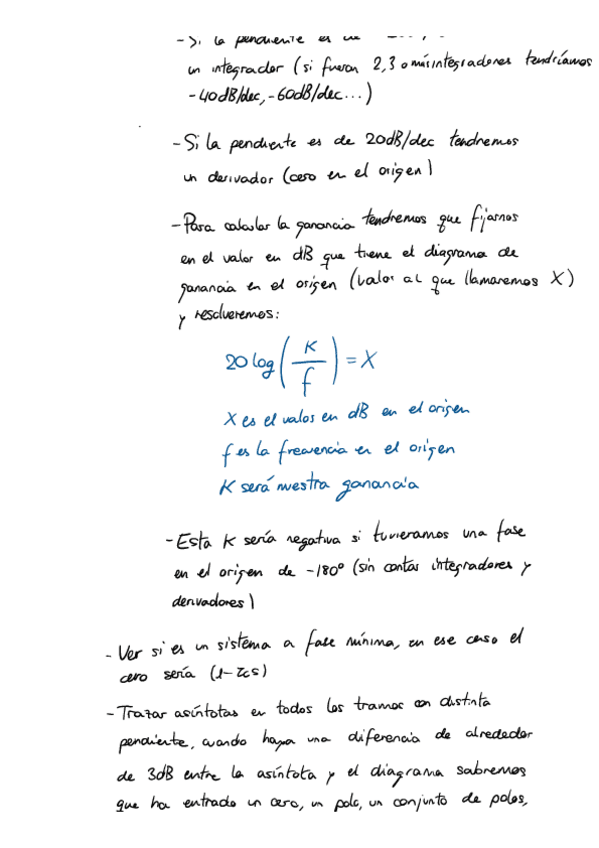 - Si la pendiente es de
un integrador (si fueran 2,3 o más integradores tendríamos
-40dB/dec, -60dB/dec...)
- Si la pendiente es de 20dB/dec tendremos
un derivador (cero en el origen)
- Para calcular la ganancia tendremos que fijarnos
en el valor en dB que tiene el diagrama de
ganancia en el origen (valor al que llamaremos X)
y resolveremos:
20 log(K/f) = X
X es el valor en dB en el origen
f es la frecuencia en el origen
K será nuestra ganancia
- Esta K sería negativa si tuvieramos una fase
en el origen de -180º (sin contar integradores y
derivadores)
- Ver si es un sistema a fase mínima, en ese caso el
cero sería (1-Zcs)
- Trazar asíntotas en todos los tramos con distinta
pendiente, cuando haya una diferencia de alrededor
de 3dB entre la asíntota y el diagrama sabremos
que ha entrado un cero, un polo, un conjunto de polos,